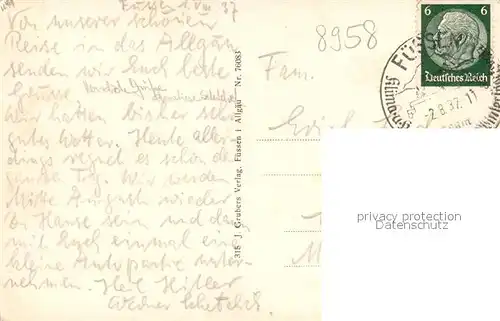 Füssen, 1. VIII 37
Von unserer schönen
Reise in das Allgäu
senden wir Euch beste
Grüsse
Herzliche Grüsse
hatten bisher sehr
gutes Wetter. Heute aller-
dings regnet es schon den
ganzen Tag. Wir werden
Mitte August wieder
zu Hause sein und dann
mit Euch einmal eine
kleine Autopartie unter-
nehmen. Heil Hitler
318 J. Grubers Verlag, Füssen i Allgäu Nr. 76083
8958
Fam.
6 6
Deutsches Reich
FÜSSEN
-2.8.37.11
privacy protection
watermark